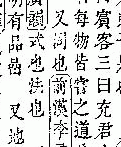 賓客三曰充君
每物皆嘗之道
又同也前漢李
廣韻式也法也
物有品嵒 又地